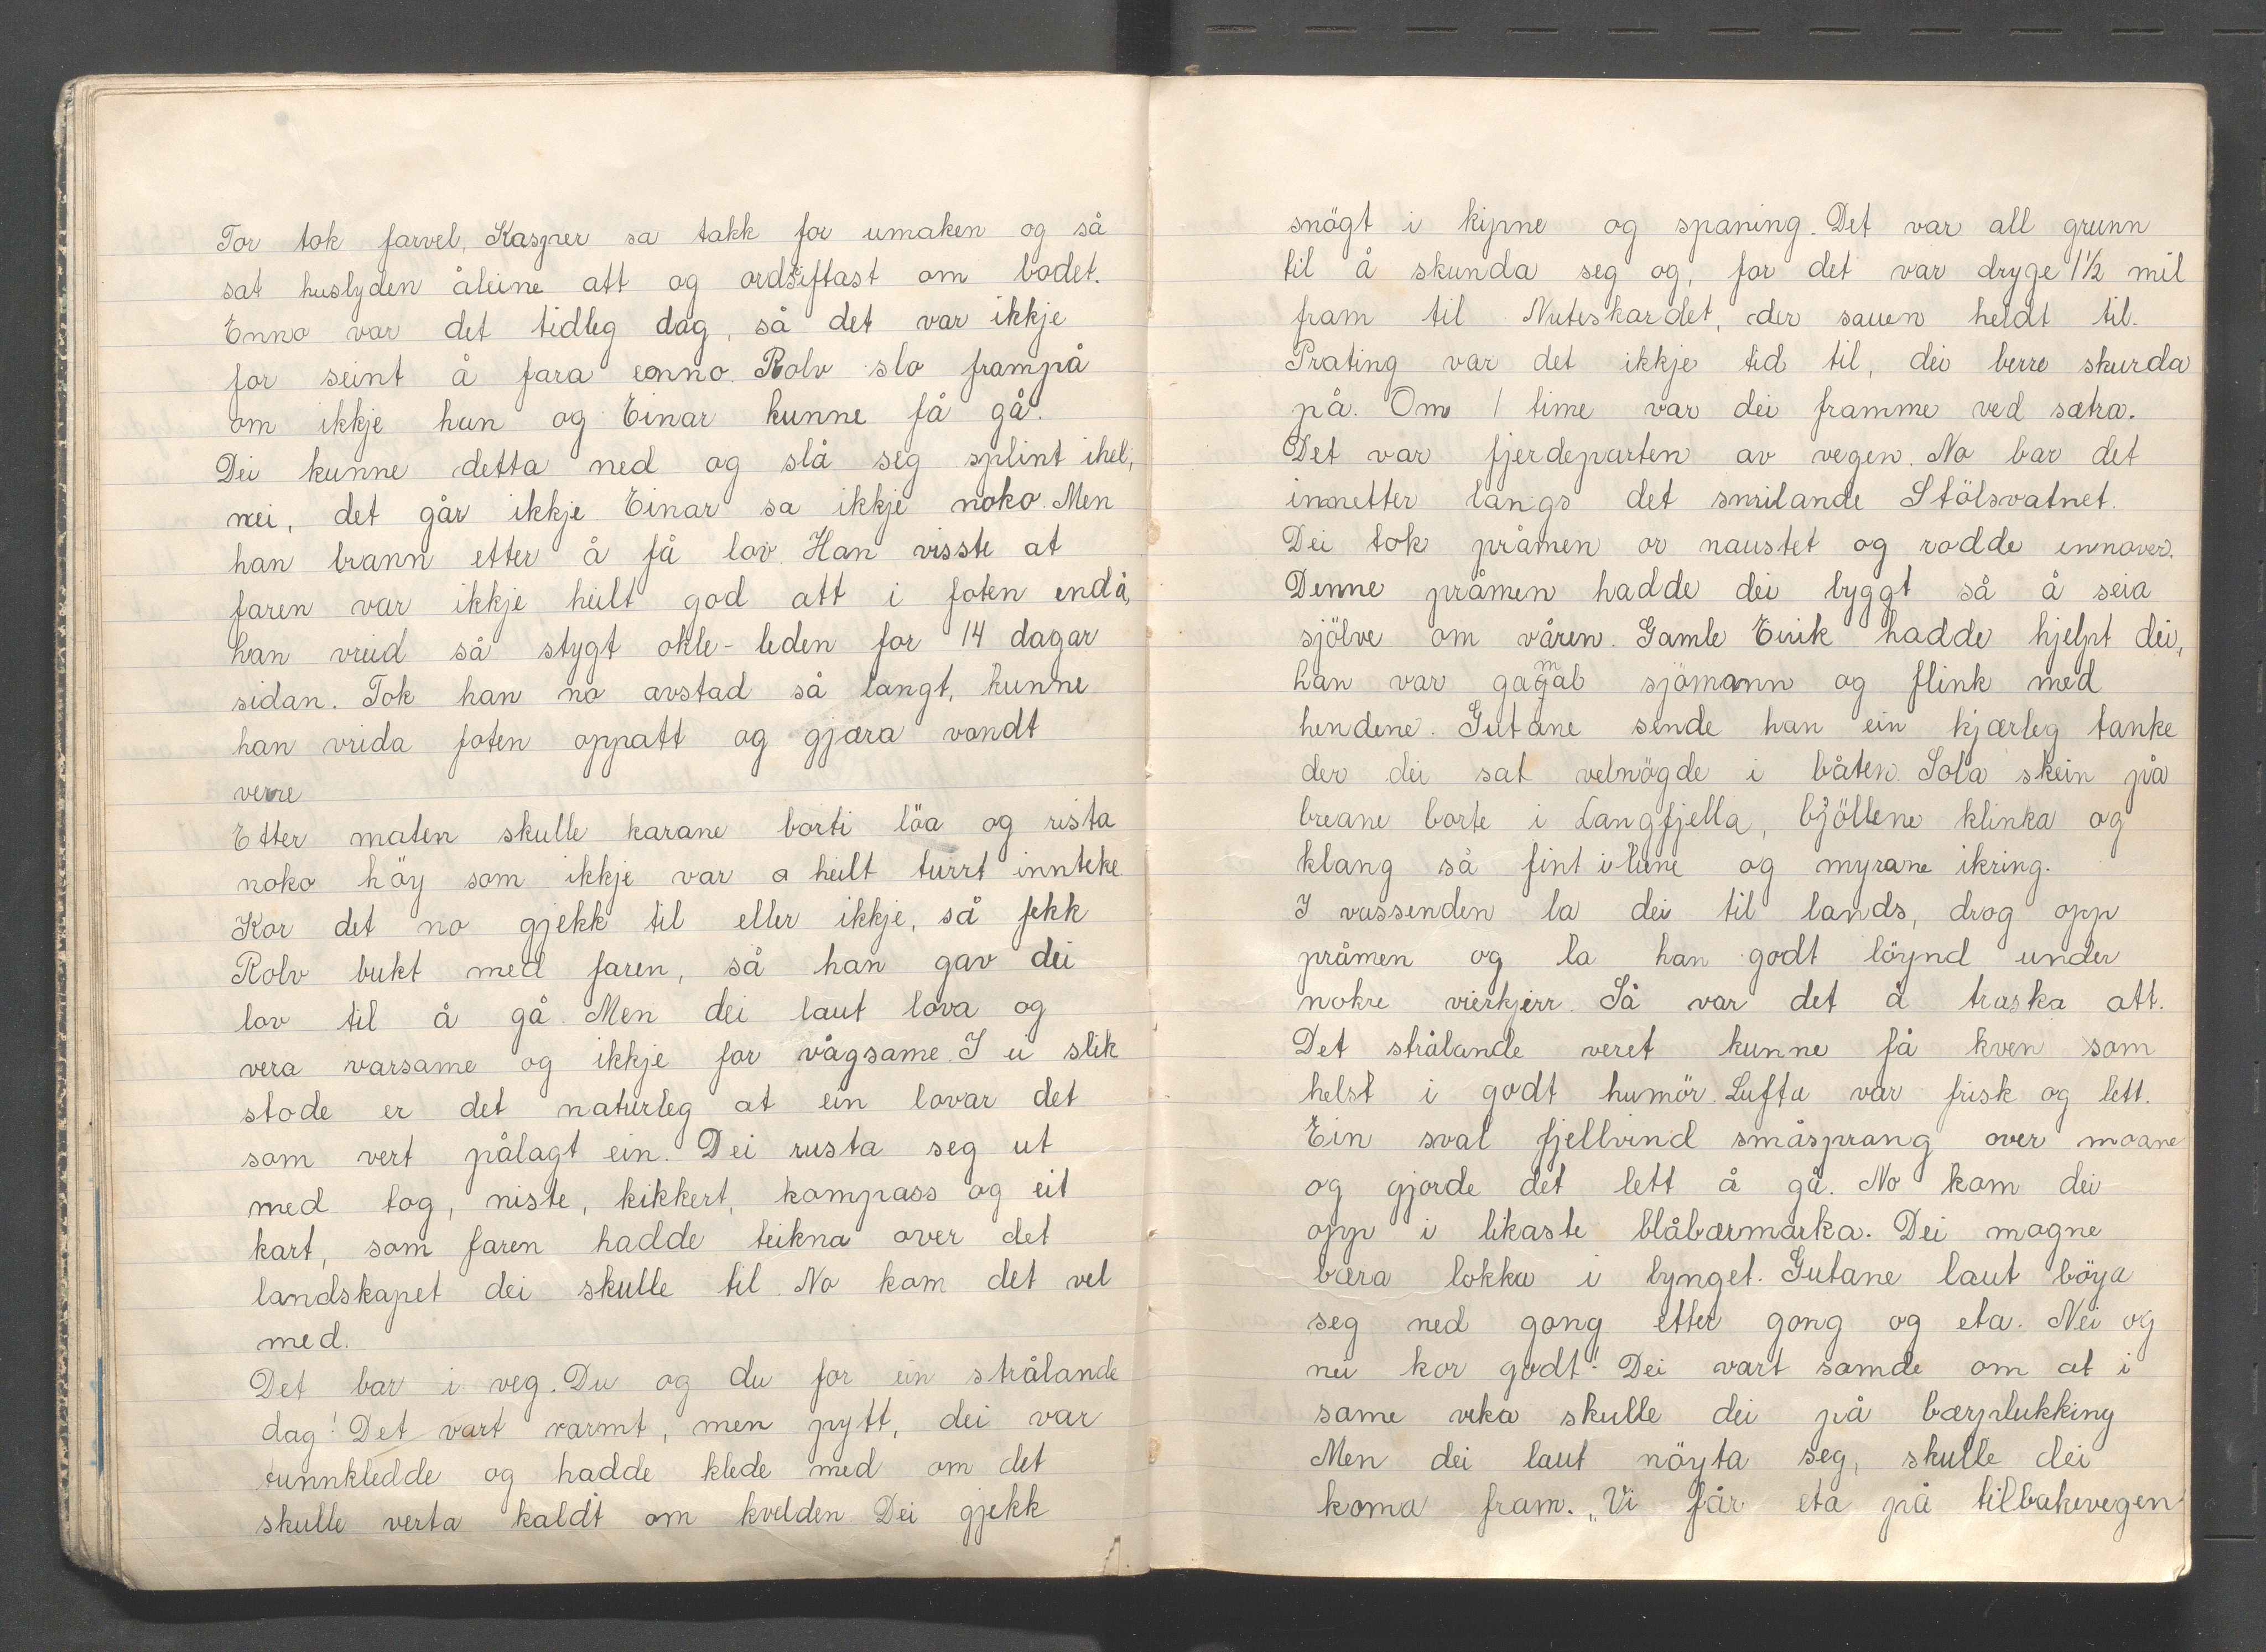 Tor tok farvel, Kasper sa takk for umaken og så
sat huslyden åleine att og ordskiftast om bodet.
Enno var det tidleg dag, så det var ikkje
for seint å fara enno. Rolv slo frampå
om ikkje han og Einar kunne få gå.
Dei kunne detta ned og slå seg splint ihel,
nei, det går ikkje Einar sa ikkje noko. Men
han brann etter å få lov. Han visste at
faren var ikkje heilt god att i foten endå,
han vreid så stygt okle-leden for 14 dagar
sidan. Tok han no avstad så langt, kunne
han vrida foten oppatt og gjæra vondt
verre
Etter maten skulle karane borti löa og rista
noko höy som ikkje var a heilt turrt innteke.
Kor det no gjekk til eller ikkje, så fekk
Rolv bukt med faren, så han gav dei
lov til å gå. Men dei laut lova og
vera varsame og ikkje for vågsame. I ei slik
stode er det naturleg at ein lovar det
som vert pålagt ein. Dei rusta seg ut
med tog, niste, kikkert, kompass og eit
kart, som faren hadde teikna over det
landskapet dei skulle til. No kom det vel
med.
Det bar i veg. Du og du for ein strålande
dag! Det vart varmt, men pytt, dei var
tunnkledde og hadde klede med om det
skulle verta kaldt om kvelden. Dei gjekk
snögt i kipne og spaning. Det var all grunn
til å skunda seg og, for det var dryge 1 1/2 mil
fram til Nuteskardet, der sauen heldt til.
Prating var det ikkje tid til, dei berre skunda
på. Om 1 time var dei framme ved sætra.
Det var fjerdeparten av vegen. No bar det
innetter langs det smilande Stölsvatnet.
Dei tok pråmen or naustet og rodde innover.
Denne pråmen hadde dei byggt så å seia
sjölve om våren. Gamle Eirik hadde hjelpt dei,
han var gamal sjömann og flink med
hendene. Gutane sende han ein kjærleg tanke
der dei sat velnögde i båten. Sola skein på
breane borte i Langfjella, bjöllene klinka og
klang så fint i liene og myrane ikring.
I vassenden la dei til lands, drog opp
pråmen og la han godt löynd under
nokre vierkjerr. Så var det å traska att.
Det strålande veret kunne få kven som
helst i godt humör. Lufta var frisk og lett.
Ein sval fjellvind småsprang over moane
og gjorde det lett å gå. No kom dei
opp i likaste blåbærmarka. Dei mogne
bæra lokka i lynget. Gutane laut böya
seg ned gong etter gong og eta. Nei og
nei kor godt! Dei vart samde om at i
same veka skulle dei på bærplukking
Men dei laut nöyta seg, skulle dei
koma fram. „Vi får eta på tilbakevegen